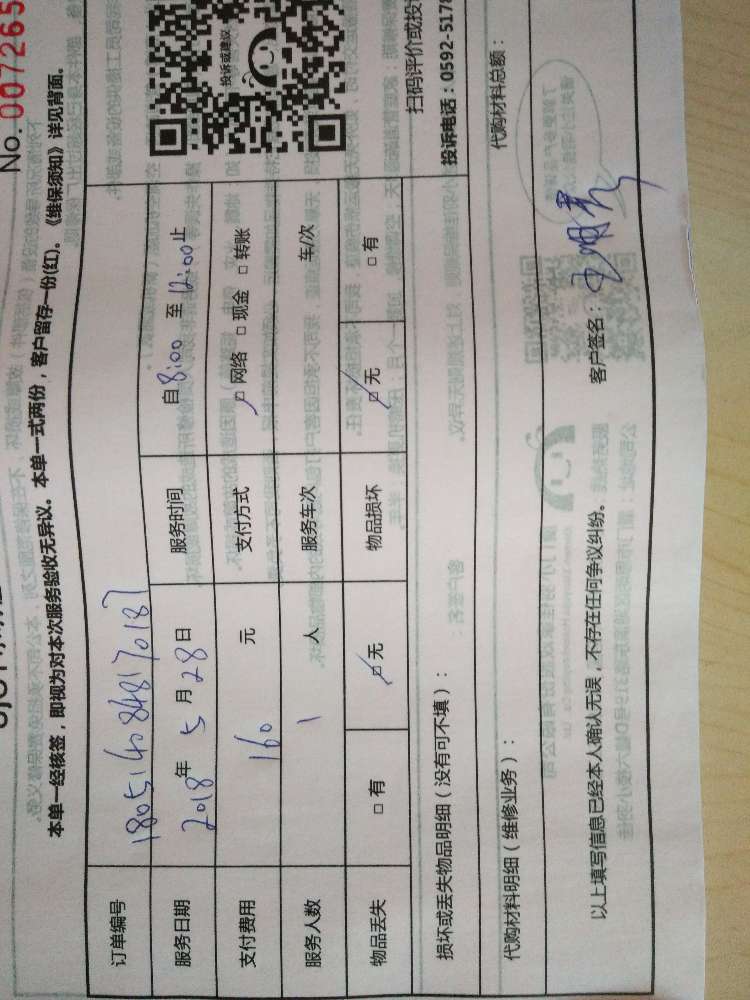 No.007265
本单一经核签，即视为对本次服务验收无异议。本单一式两份，客户留存一份(红)。《维保须知》详见背面。
订单编号 1805140848170187
服务日期 2018年5月28日 服务时间 自8:00至12:00止
支付费用 160元 支付方式 □网络 □现金 □转账
服务人数 1人 服务车次 车/次
物品丢失 □有 □无 物品损坏 □无 □有
投诉或建议
扫码评价或投
投诉电话：0592-5178
损坏或丢失物品明细（没有可不填）：
代购材料明细（维修业务）： 代购材料总额：
以上填写信息已经本人确认无误，不存在任何争议纠纷。 客户签名：